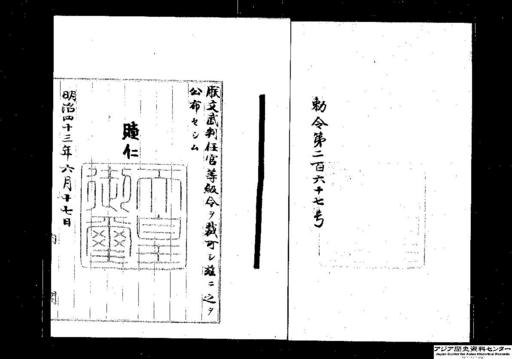 勅令第二百六十七号
朕文武判任官等級令ヲ裁可シ茲ニ之ヲ
公布セシム
睦仁
天皇
御璽
明治四十三年六月十七日
内閣
アジア歴史資料センター
Japan Center for Asian Historical Records